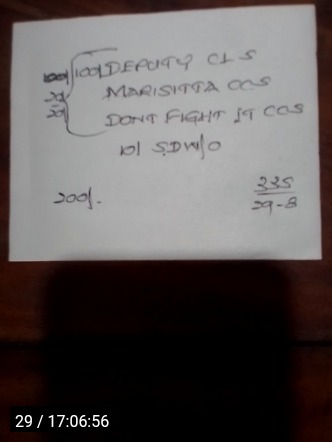 100/ DEPUTY CLS
20/ MARISITTA CCS
20/ DONT FIGHT IT CCS
10/ S.D W/O
200/-
335
29-8
29 / 17:06:56